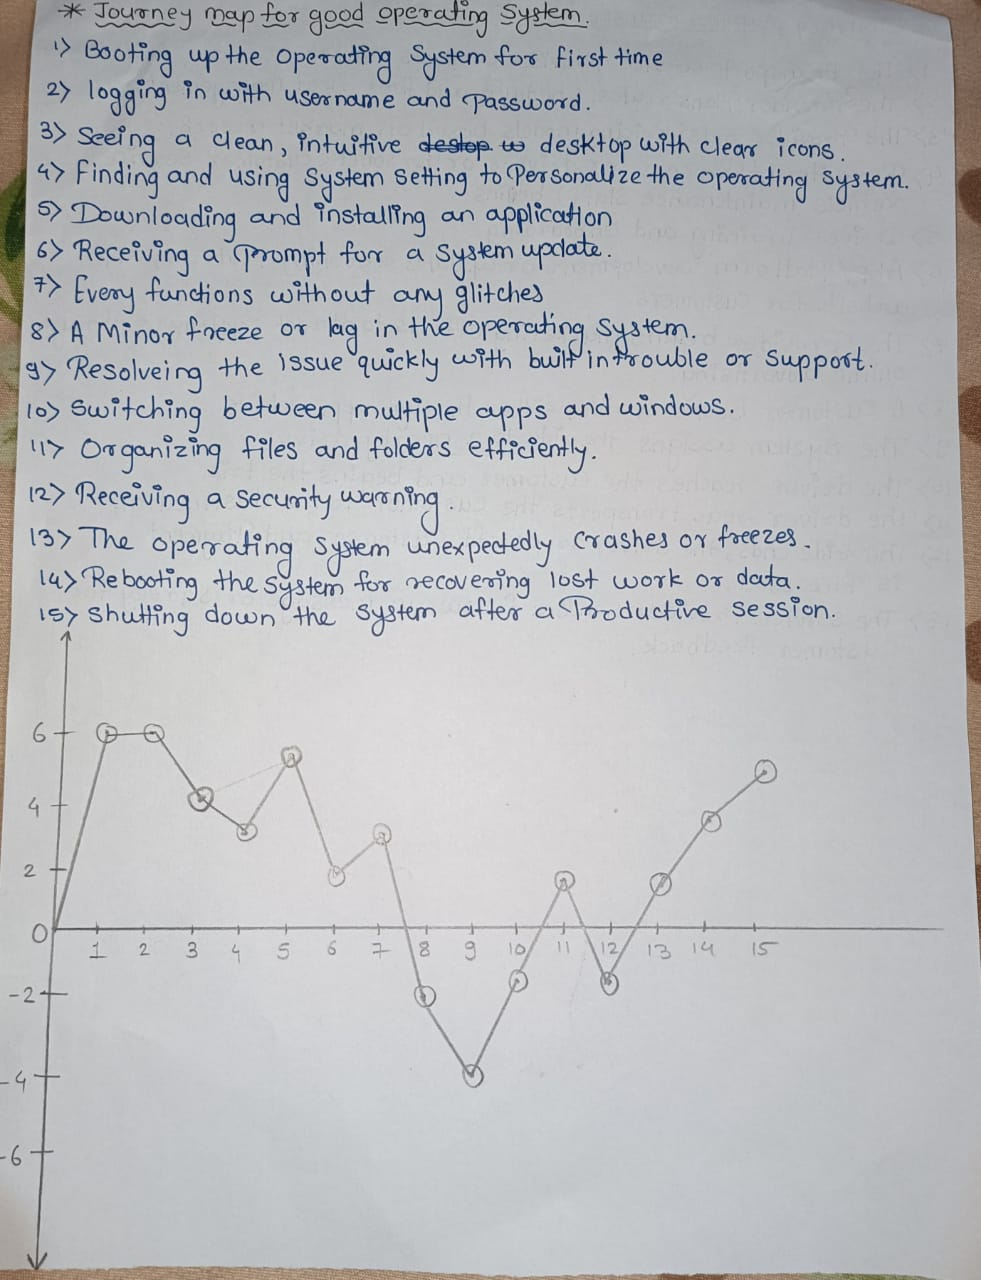 * Journey map for good operating System.
1> Booting up the operating System for first time
2> logging in with username and Password.
3> Seeing a clean, intuitive destop w desktop with clear icons.
4> Finding and using System Setting to Personalize the operating System.
5> Downloading and installing an application
6> Receiving a Prompt for a System update.
7> Every functions without any glitches
8> A Minor freeze or lag in the operating System.
9> Resolveing the issue quickly with built in trouble or Support.
10> Switching between multiple apps and windows.
11> Organizing files and folders efficiently.
12> Receiving a security warning.
13> The operating System unexpectedly crashes or freezes.
14> Rebooting the system for recovering lost work or data.
15> Shutting down the System after a Productive session.
6
4
2
0
1 2 3 4 5 6 7 8 9 10 11 12 13 14 15
-2
-4
-6